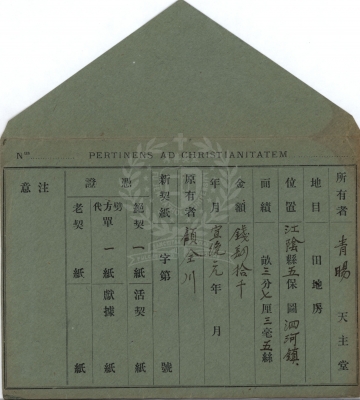 Nos PERTINENS AD CHRISTIANITATEM
所有者 青暘 天主堂
地目 田地房
位置 江陰縣五保 圖 泗河鎮
面積 畝三分七厘三毫五絲
金額 錢 拾千
年月 宣統元年 月
原有者 顧全川
新契紙 字第 號
憑證
絕契 一紙 活契 紙
代方契單 一紙 獻據 紙
老契 紙
注意